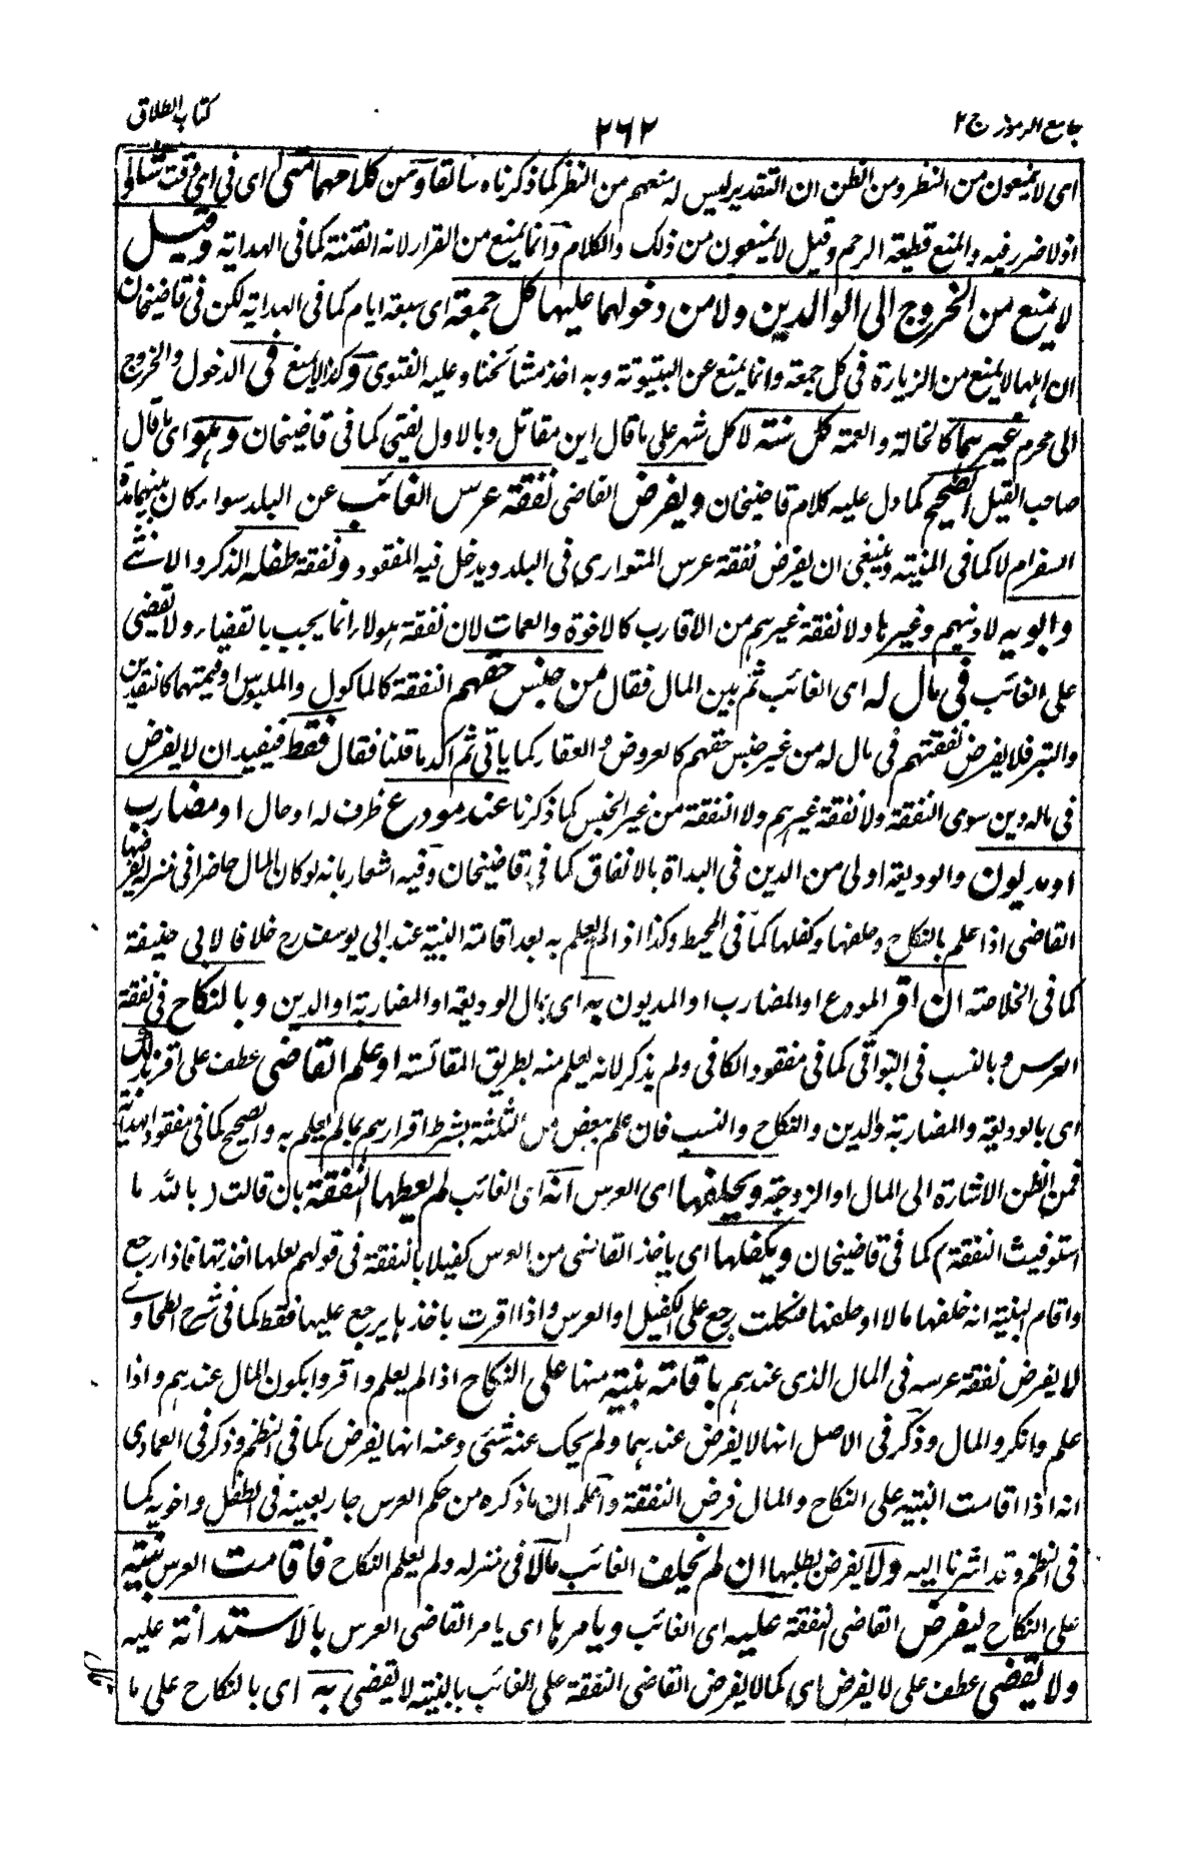 جامع الرموز ج ٢
٢٦٢
كتاب الطلاق
اى لا يمنعون من النظر ومن الظن ان التقدير ليس له منعهم من النظر كما ذكرناه سابقا ومن كلامهما متى اى فى اى وقت شاؤا
اذ لا ضرر فيه والمنع قطيعة الرحم وقيل لا يمنعون من ذلك والكلام وانما يمنع من القرار لانه الفتنة كما فى الهداية وقيل
لا يمنع من الخروج الى الوالدين ولا من دخولهما عليها كل جمعة اى سبعة ايام كما فى الهداية لكن فى قاضيخان
ان اهلها لا يمنع من الزيارة فى كل جمعة وانما يمنع عن البيتوتة وبه اخذ مشائخنا وعليه الفتوى وكذا لا يمنع فى الدخول والخروج
الى محرم غيرهما كالخالة والعمة كل سنة لا كل شهر على ما قال ابن مقاتل وبالاول يفتى كما فى قاضيخان وهو اى ما قال
صاحب القيل الصحيح كما دل عليه كلام قاضيخان ويفرض القاضى نفقة عرس الغائب عن البلد سواء كان بينهما مدة
السفر ام لا كما فى المنية وينبغى ان يفرض نفقة عرس المتوارى فى البلد ويدخل فيه المفقود ونفقة طفله الذكر والانثى
وابويه لا دينهم وغيرها ولا نفقة غيرهم من الاقارب كالاخوة والعمات لان نفقة هولاء انما يجب بالقضاء ولا يقضى
على الغائب فى مال له اى الغائب ثم بين المال فقال من جنس حقهم النفقة كالماكول والملبوس او قيمتهما كالنقدين
والتبر فلا يفرض نفقتهم فى مال له من غير جنس حقهم كالعروض والعقار كما ياتى ثم اكد ما قلنا فقال فقط فيفيد ان لا يفرض
فى ماله دين سوى النفقة ولا نفقة غيرهم ولا النفقة من غير الجنس كما ذكرنا عند مودع ظرف له او حال او مضارب
او مديون والوديعة اولى من الدين فى البداة بالانفاق كما فى قاضيخان وفيه اشعار بانه لو كان المال حاضرا فى منزله يفرضها
القاضى اذا علم بالنكاح وحلفها وكفلها كما فى المحيط وكذا اذا لم يعلم به بعد اقامة البينة عند ابى يوسف رح خلافا لابى حنيفة
كما فى الخلاصة ان اقر المودع او المضارب او المديون به اى بمال الوديعة او المضاربة او الدين وبالنكاح فى نفقة
العرس وبالنسب فى البواقى كما فى مفقود الكافى ولم يذكر لانه يعلم منه بطريق المقائسة او علم القاضى عطف على اقر ذلك
اى بالوديعة والمضاربة والدين والنكاح والنسب فان علم بعض من الثلثة بشرط اقرارهم بما لم يعلم به والصحيح كما فى مفقود الهداية
فمن الظن الاشارة الى المال او الزوجة ويحلفها اى العرس انه اى الغائب لم يعطها النفقة بان قالت ( بالله ما
استوفيت النفقة ) كما فى قاضيخان ويكفلها اى ياخذ القاضى من العرس كفيلا بالنفقة فى قولهم لعلها اخذتها فاذا رجع
واقام البينة انه خلفها مالا او حلفها فنكلت رجع على الكفيل او العرس واذا اقرت باخذها يرجع عليها فقط كما فى شرح الطحاوى
لا يفرض نفقة عرسه فى المال الذى عندهم باقامة بينة منها على النكاح اذا لم يعلم واقروا بكون المال عندهم واذا
علم وانكر والمال وذكر فى الاصل انها لا يفرض عندهما ولم يحك عنه شئى وعنه انها يفرض كما فى النظم وذكر فى العمادى
انه اذا اقامت البينة على النكاح والمال فرض النفقة واعلم ان ما ذكره من حكم العرس جار بعينه فى الطفل واخويه كما
فى النظم وقد اشرنا اليه ولا يفرض لطلبها ان لم يخلف الغائب مالا فى منزله ولم يعلم النكاح فاقامت العرس بينة
على النكاح ليفرض القاضى النفقة عليه اى الغائب ويامرها اى يامر القاضى العرس بالاستدانة عليه
ولا يقضى عطف على لا يفرض اى كما لا يفرض القاضى النفقة على الغائب بالبينة لا يقضى به اى بالنكاح على ما